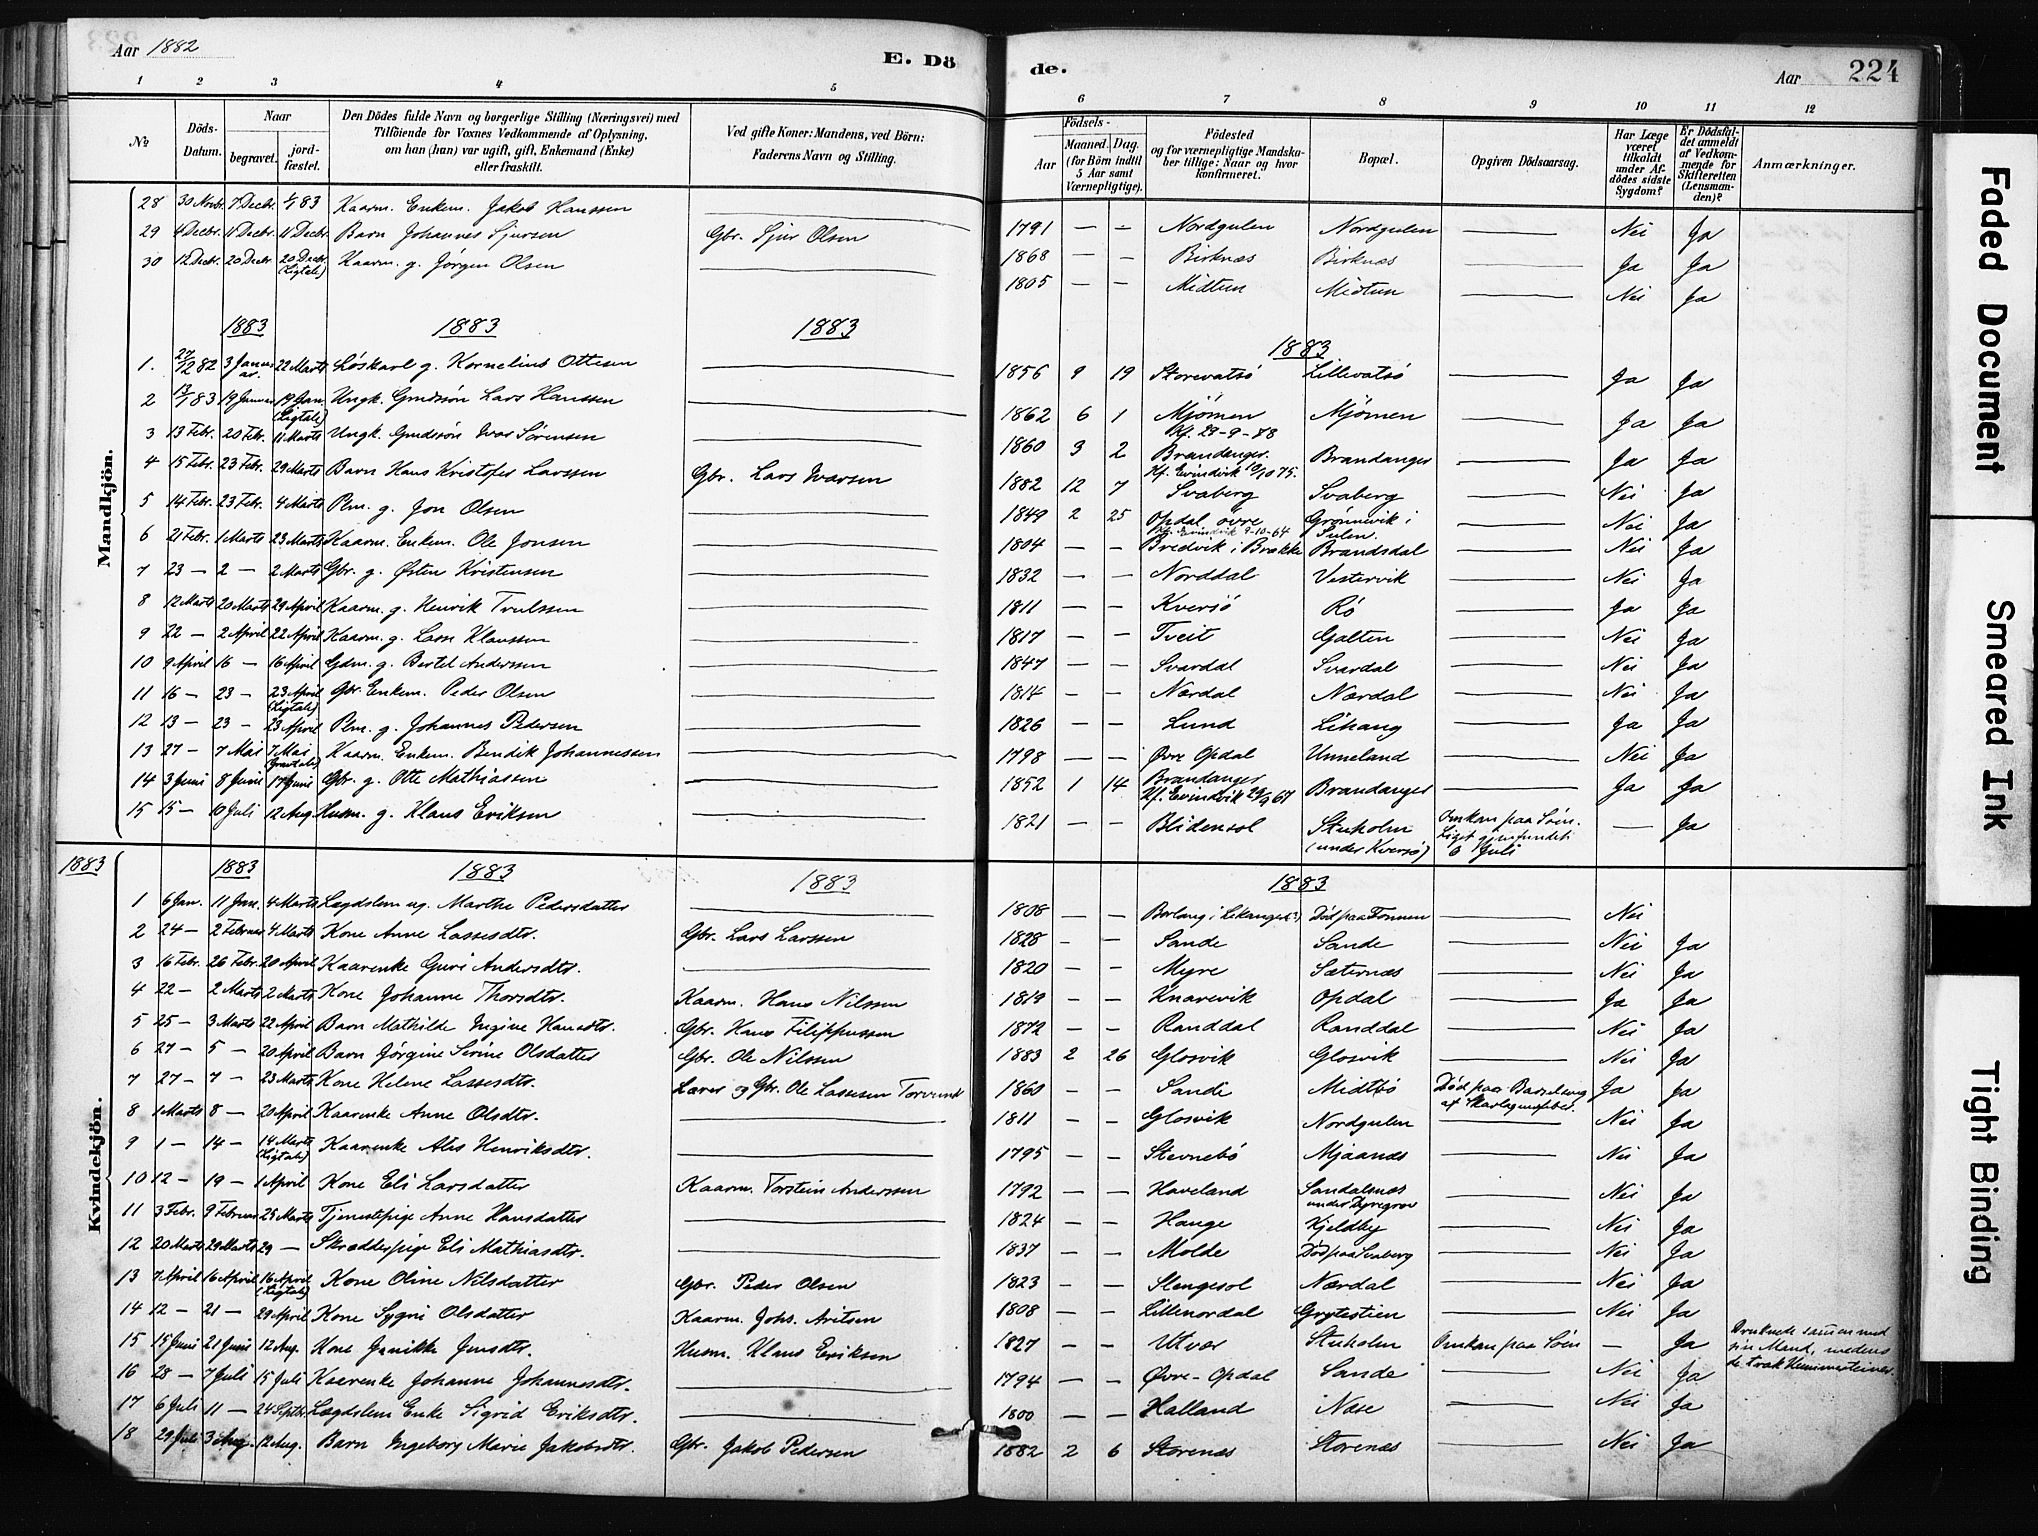 Aar 1882
E. Dö
de.
Aar
224
1 2 3 4 5 6 7 8 9 10 11 12
No
Döds-Datum.
Naar
begravet.
jordfæstet.
Den Dödes fulde Navn og borgerlige Stilling (Næringsvei) med
Tilföiende for Voxnes Vedkommende af Oplysning,
om han (hun) var ugift, gift, Enkemand (Enke)
eller fraskilt.
Ved gifte Koner: Mandens, ved Börn:
Faderens Navn og Stilling.
Födsels-
Aar
Maaned. Dag.
(for Börn indtil
5 Aar samt
Værnepligtige).
Födested
og for værnepligtige Mandska-
ber tillige: Naar og hvor
konfirmeret.
Bopæl.
Opgiven Dödsaarsag.
Har Læge
været
tilkaldt
under Af-
dödes sidste
Sygdom?
Er Dödsfal-
det anmeldt
af Vedkom-
mende for
Skifteretten
(Lensman-
den)?
Anmærkninger.
Mandkjön.
28 30 Novbr. 7 Decbr. 83 Kaarm. Enkem. Jakob Hanssen — 1791 — — Nordgulen Nordgulen — Nei Ja
29 4 Decbr. 11 Decbr. 11 Decbr. Barn Johannes Sjursen Gbr. Sjur Olsen 1868 — — Birknæs Birknæs — Ja Ja
30 12 Decbr. 20 Decbr 20 Decbr. (Ligtale) Kaarm. g. Jörgen Olsen — 1805 — — Midtun Midtun — Nei Ja
1883 1883 1883 1883
1. 27/12 82 3 Januar 22 Marts Löskarl g. Kornelius Ottesen — 1856 9 19 Storevatsö Lillevatsö — Ja Ja
2 13/1 83 19 Januar 19 Jan. (Ligtale) Ungk. Gmdssön Lars Hanssen — 1862 6 1 Mjömen Kf. 29-9-78 Mjömen — Ja Ja
3 13 Febr. 20 Febr. 11 Marts Ungk. Gmdssön Ivar Sörensen — 1860 3 2 Brandanger Kf. Evindvik 10/10 75. Brandanger — Ja Ja
4 15 Febr. 23 Febr. 29 Marts Barn Hans Kristofer Larssen Gbr. Lars Ivarsen 1882 12 7 Svaberg Svaberg — Nei Ja
5 14 Febr. 23 Febr. 4 Marts Plm. g. Jon Olsen — 1849 2 25 Opdal övre Kf. Evindvik 9-10-64 Grönnevik i Sulen. — Nei Ja
6 21 Febr. 1 Marts 23 Marts Kaarm. Enkem. Ole Jonsen — 1804 — — Bredvik i Brække Brandsdal — Nei Ja
7 23 — 2 — 2 Marts Gbr. g. Östen Kristensen — 1832 — — Norddal Vestervik — Nei Ja
8 12 Marts 20 Marts 29 April Kaarm. g. Henrik Trulssen — 1811 — — Kversö Rö — Ja Ja
9 22 — 2 April 22 April Kaarm. g. Lasse Klaussen — 1817 — — Tveit Galten — Nei Ja
10 9 April 16 — 16 April Gdm. g. Bertel Anderssen — 1847 — — Svardal Svardal — Nei Ja
11 16 — 23 — 23 April (Ligtale) Gbr. Enkem. Peder Olsen — 1814 — — Nærdal Nærdal — Nei Ja
12 13 — 23 — 23 April Plm. g. Johannes Pedersen — 1826 — — Lund Likang — Ja Ja
13 27 — 7 Mai 7 Mai (Gravtale) Kaarm. Enkem. Bendik Johannessen — 1798 — — Övre Opdal Unneland — Nei Ja
14 3 Juni 8 Juni 17 Juni Gbr. g. Otte Mathiassen — 1852 1 14 Brandanger Kf. Evindvik 29/9 67 Brandanger — Ja Ja
15 15 — 10 Juli 12 Aug. Husm. g. Klaus Eriksen — 1821 — — Blidensol Stuholm (under Kversö) Omkom paa Söen. Liget gjenfundet 6 Juli — Ja
Kvindekjön.
1883 1883 1883 1883 1883
1 6 Jan. 11 Jan. 4 Marts Lægdslem ug. Marthe Pedersdatter — 1808 — — Borlaug i Lekanger(?) Död paa Tonnen — Nei
2 24 — 2 Februar 4 Marts Kone Anne Lassesdtr. Gbr. Lars Larssen 1828 — — Sande Sande — Nei Ja
3 16 Febr. 26 Febr. 20 April Kaarenke Guri Andersdtr. — 1820 — — Myre Sæternæs — Nei Ja
4 22 — 2 Marts 2 Marts Kone Johanne Thorsdtr. Kaarm. Hans Nilssen 1819 — — Knarevik Opdal — Ja Ja
5 25 — 3 Marts 22 April Barn Mathilde Ingine Hansdtr. Gbr. Hans Filippussen 1872 — — Randdal Randdal — Nei Ja
6 27 — 5 — 20 April Barn Jörgine Serine Olsdatter Gbr. Ole Nilssen 1883 2 26 Glosvik Glosvik — Nei Ja
7 27 — 7 — 23 Marts Kone Helene Lassesdtr. Lærer og Gbr. Ole Lassesen Torvund 1860 — — Sande Midtbö Död paa Barselseng af Skarlagensfeber. Ja Ja
8 1 Marts 8 — 20 April Kaarenke Anne Olsdtr. — 1811 — — Glosvik Nordgulen — Nei Ja
9 1 — 14 — 14 Marts (Ligtale) Kaarenke Alas Henriksdtr. — 1795 — — Stevnebö Mjaanæs — Nei Ja
10 12 — 19 — 1 April Kone Eli Larsdatter Kaarm. Torstein Anderssen 1792 — — Haveland Sandalsnæs under Dyregrov — Nei Ja
11 3 Febr. 9 Februar 25 Marts Tjenestepige Anne Hansdatter — 1824 — — Hauge Kjeldby — Nei Ja
12 20 Marts 29 Marts 29 — Skrædderpige Eli Mathiasdtr. — 1837 — — Molde Död paa Svaberg — Nei Ja
13 7 April 16 April 16 April (Ligtale) Kone Oline Nilsdatter Gbr. Peder Olsen 1823 — — Slengesol Nærdal — Nei Ja
14 12 — 21 — 29 April Kone Sygni Olsdatter Kaarm. Johs. Aritsen 1808 — — Lillenordal Grytestien — Nei Ja
15 15 Juni 21 Juni 12 Aug. Kone Janikke Jensdtr. Husm. Klaus Eriksen 1827 — — Utvær Stuholm Omkom paa Söen — Ja Druknede sammen med sin Mand, medens de trak
16 28 — 7 Juli 15 Juli Kaarenke Johanne Johannesdtr. — 1794 — — Övre-Opdal Sande — Nei Ja
17 6 Juli 11 — 24 Septbr. Lægdslem Enke Sigrid Eriksdtr. — 1800 — — Halland Næse — Nei Ja
18 29 Juli 3 Aug. 12 Aug. Barn Ingeborg Marie Jakobsdtr. Gbr. Jakob Pedersen 1882 2 6 Storenæs Storenæs — Nei Ja
Faded Document
Smeared Ink
Tight Binding